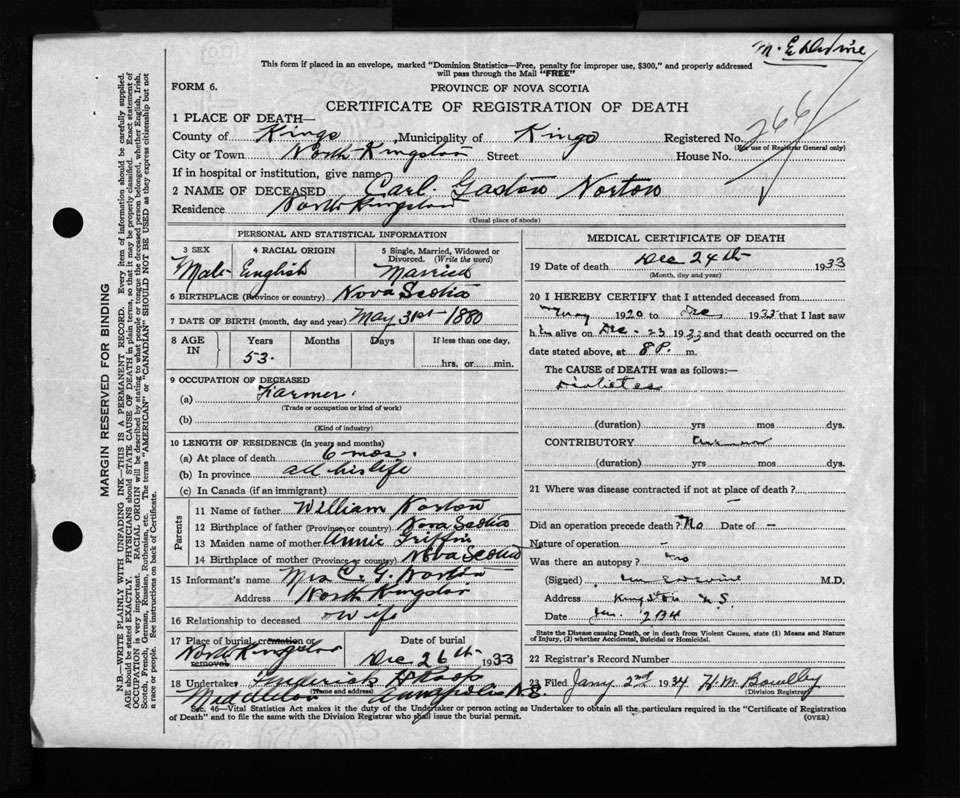 This form if placed in an envelope, marked "Dominion Statistics—Free, penalty for improper use, $300," and properly addressed
will pass through the Mail "FREE"
FORM 6. PROVINCE OF NOVA SCOTIA
CERTIFICATE OF REGISTRATION OF DEATH
266
1 PLACE OF DEATH—
County of Kings, Municipality of Kings Registered No.
(For use of Registrar General only)
City or Town North Kingston Street House No.
If in hospital or institution, give name
2 NAME OF DECEASED Carl. Gaston Norton
Residence North Kingston
(Usual place of abode)
PERSONAL AND STATISTICAL INFORMATION
3 SEX 4 RACIAL ORIGIN 5 Single, Married, Widowed or Divorced. (Write the word)
Male English Married
6 BIRTHPLACE (Province or country) Nova Scotia
7 DATE OF BIRTH (month, day and year) May 31st 1880
8 AGE IN Years Months Days If less than one day,
53. hrs. or min.
9 OCCUPATION OF DECEASED
(a) Farmer.
(Trade or occupation or kind of work)
(b)
(Kind of industry)
10 LENGTH OF RESIDENCE (in years and months)
(a) At place of death 6 mos.
(b) In province all his life
(c) In Canada (if an immigrant)
Parents
11 Name of father William Norton
12 Birthplace of father (Province or country) Nova Scotia
13 Maiden name of mother Annie Griffin
14 Birthplace of mother (Province or country) Nova Scotia
15 Informant's name Mrs C. G. Norton
Address North Kingston
16 Relationship to deceased Wife
17 Place of burial cremation or removal Date of burial
North Kingston Dec 26th 1933
18 Undertaker Frederick
(Name and address)
Middleton Annapolis N.S.
MEDICAL CERTIFICATE OF DEATH
19 Date of death Dec 24th 1933
(Month, day and year)
20 I HEREBY CERTIFY that I attended deceased from
1920 to Dec 1933 that I last saw
him alive on Dec. 23 1933 and that death occurred on
date stated above, at 8 P. m.
The CAUSE of DEATH was as follows:—
Diabetes
(duration) yrs mos dys.
CONTRIBUTORY
(duration) yrs mos dys.
21 Where was disease contracted if not at place of death?
–
Did an operation precede death? No Date of –
Nature of operation –
Was there an autopsy? No
(Signed) M.D.
Address Kingston N.S.
Date Jan. 2 34
State the Disease causing Death, or in death from Violent Causes, state (1) Means and Nature
of Injury, (2) whether Accidental, Suicidal or Homicidal.
22 Registrar's Record Number
23 Filed Jany 2nd 1934 H. M.
(Division Registrar)
Sec. 46—Vital Statistics Act makes it the duty of the Undertaker or person acting as Undertaker to obtain all the particulars required in the "Certificate of Registration
of Death" and to file the same with the Division Registrar who shall issue the burial permit. (OVER)
MARGIN RESERVED FOR BINDING
N.B.—WRITE PLAINLY WITH UNFADING INK—THIS IS A PERMANENT RECORD. Every item of information should be carefully supplied.
AGE should be stated EXACTLY. PHYSICIANS should STATE CAUSE OF DEATH in plain terms, so that it may be properly classified. Exact statement of
OCCUPATION is very important. RACIAL ORIGIN will be described by stating to what people or tongue the deceased person belonged, whether English, Irish,
Scotch, French, German, Russian, Ruthenian, etc. The terms "AMERICAN" or "CANADIAN" SHOULD NOT BE USED as they express citizenship but not
a race or people. See instructions on back of Certificate.